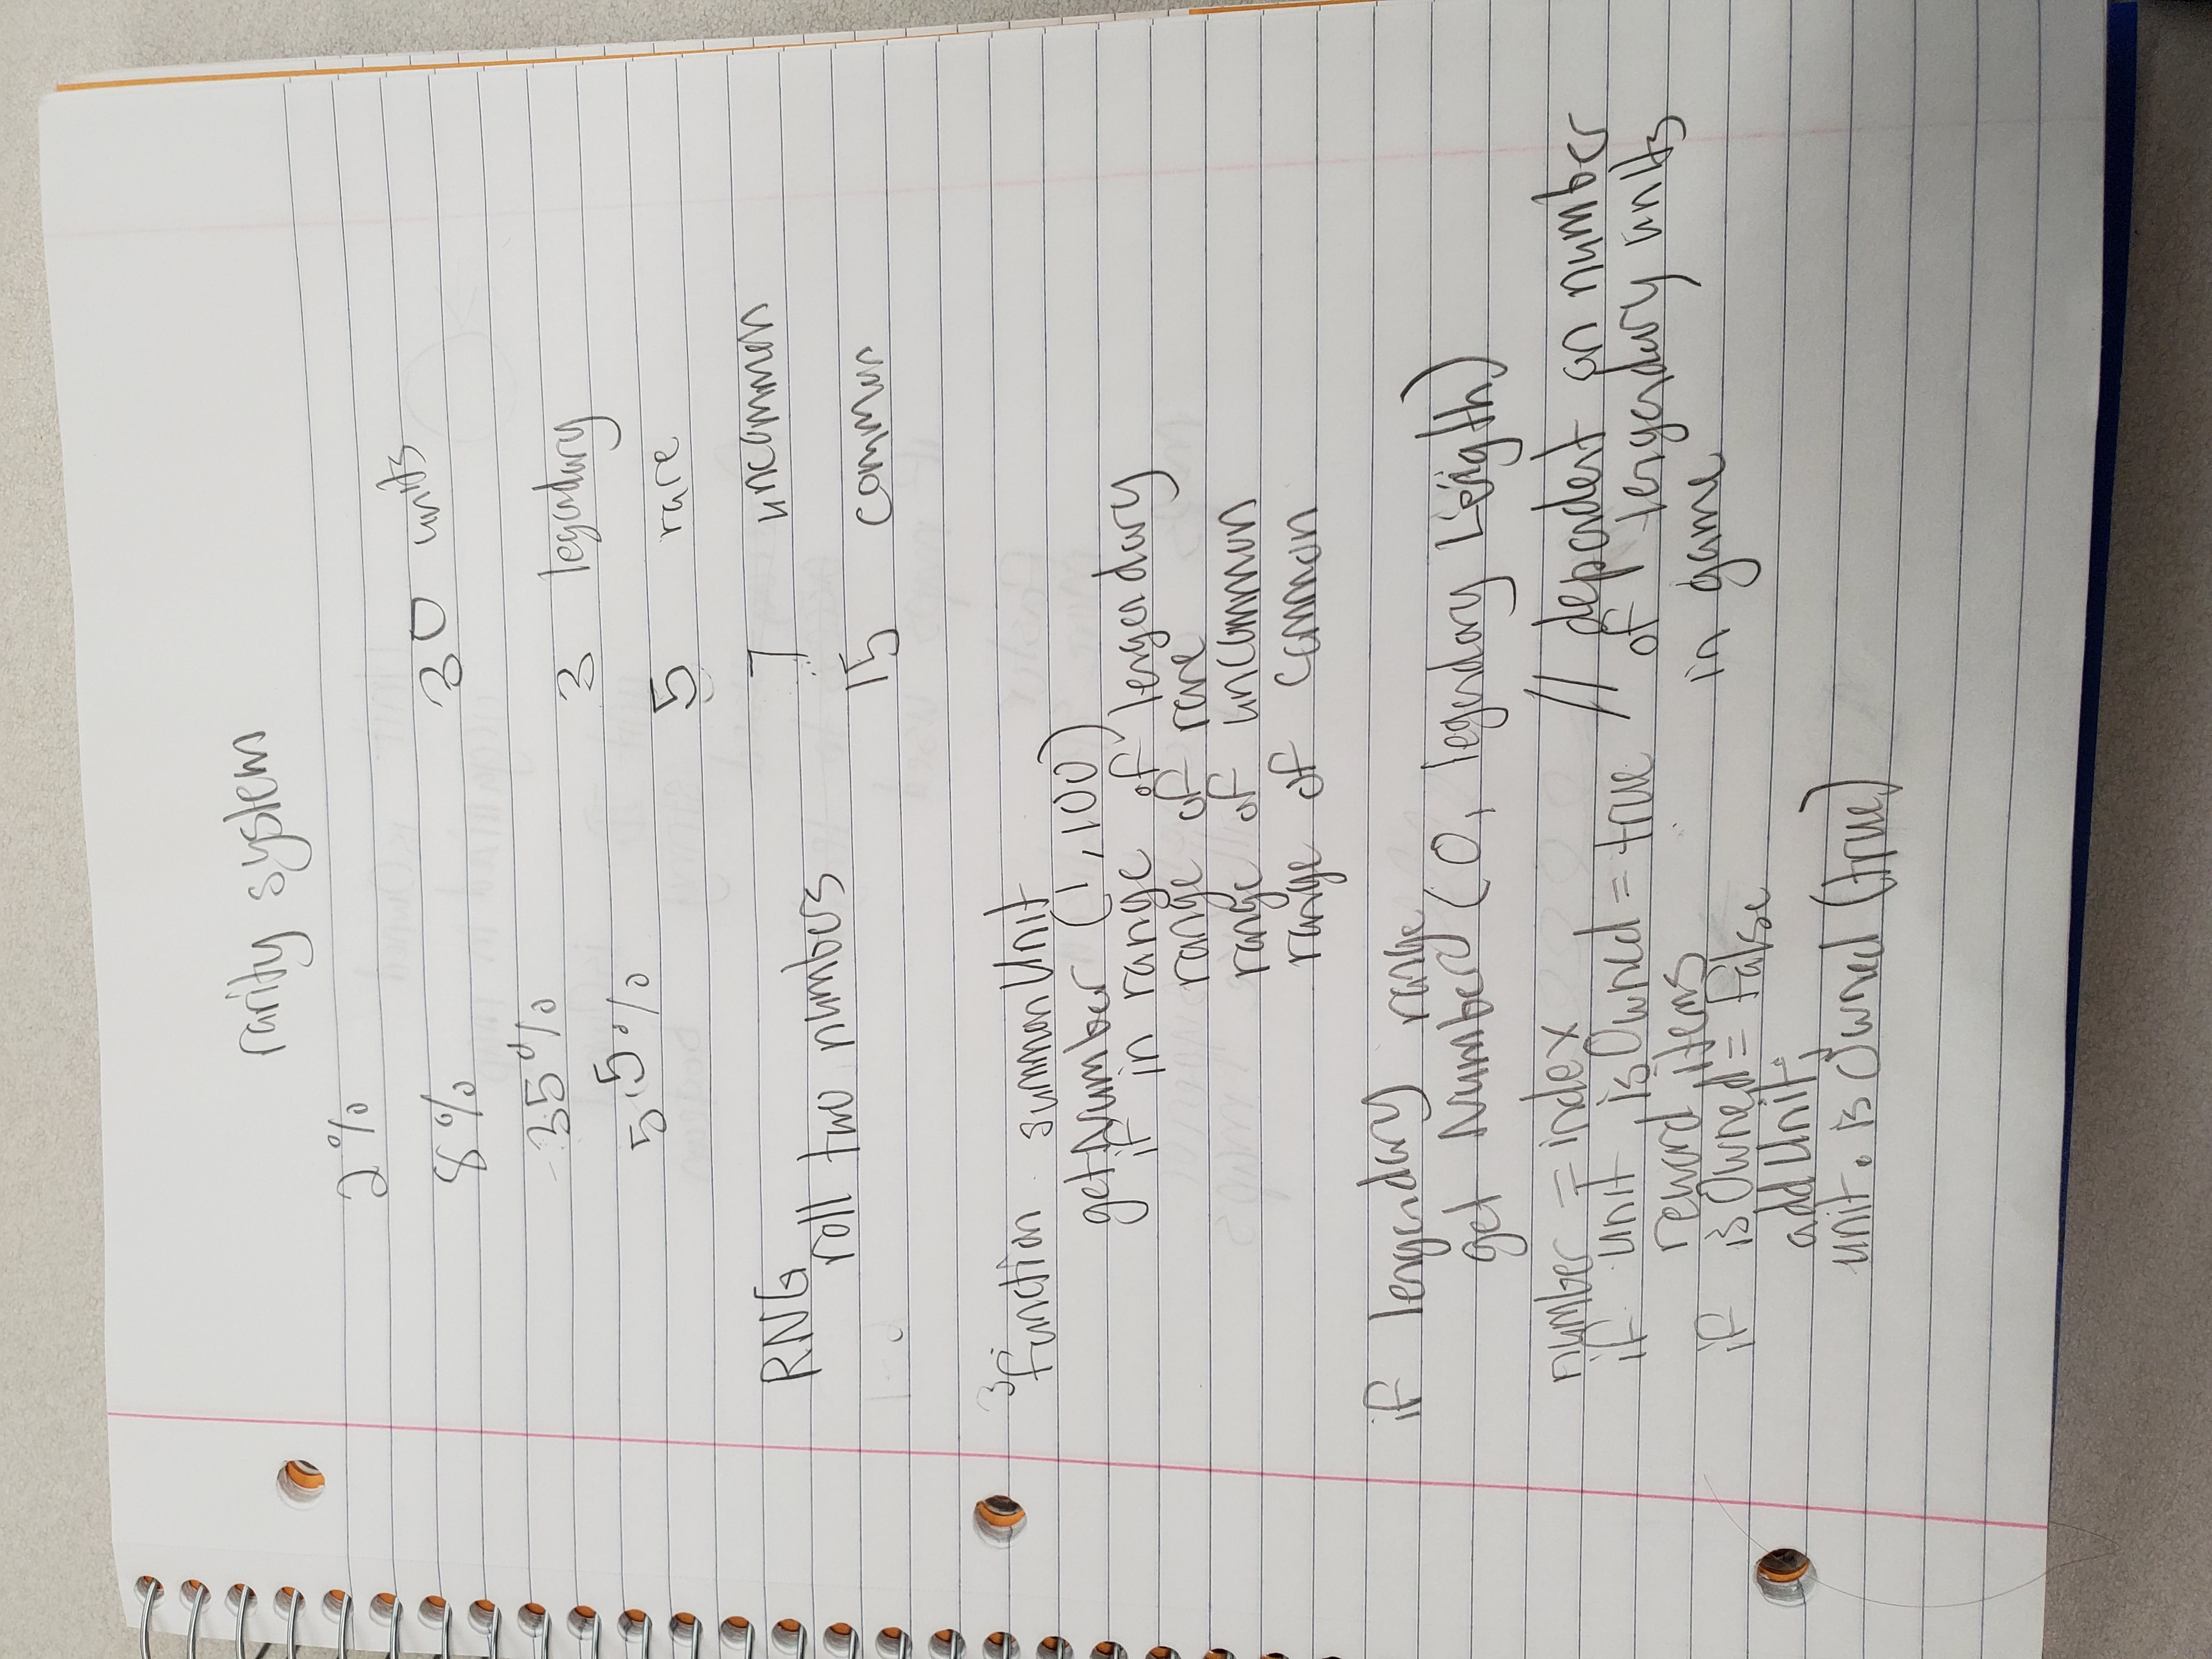 rarity system
2%
8%
35%
55%
30 units
3 legendary
5 rare
7 uncommon
15 common
RNG
roll two numbers
function summonUnit
getNumber (1,100)
if in range of lengendary
range of rare
range of uncommon
range of common
if lengendary range
get Number (0, legendary Length)
number = index
if unit, isOwned = true
reward items
if isOwned = false
addUnit;
unit. isOwned (true)
// dependent on number
of lengendary units
in game